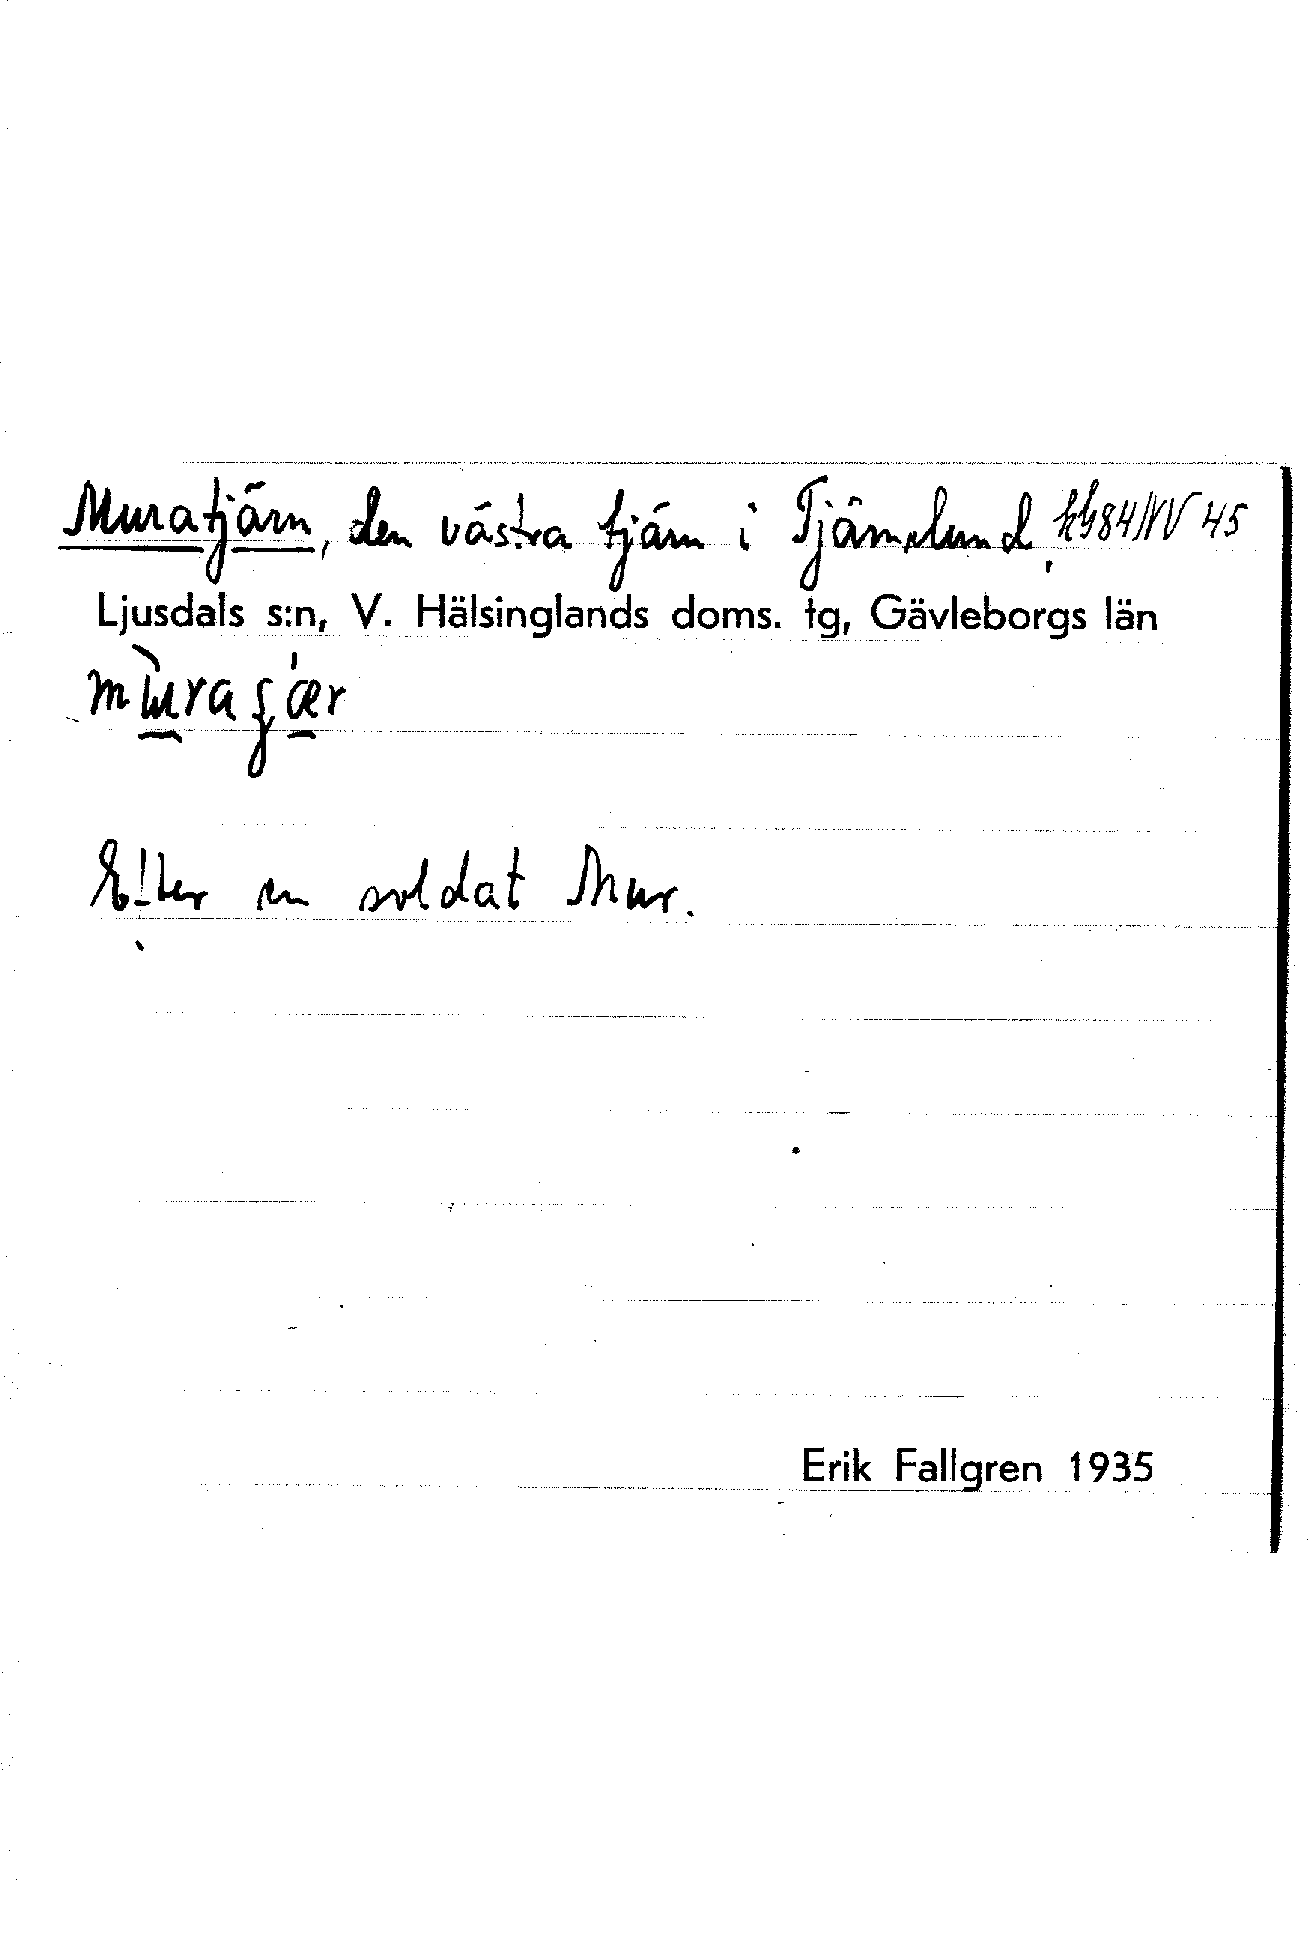 Muratjärn, den västra tjärn i Tjärnslund, 84 NV 45
Ljusdals s:n, V. Hälsinglands doms. tg, Gävleborgs län
Efter en soldat Mur.
Erik Fallgren 1935